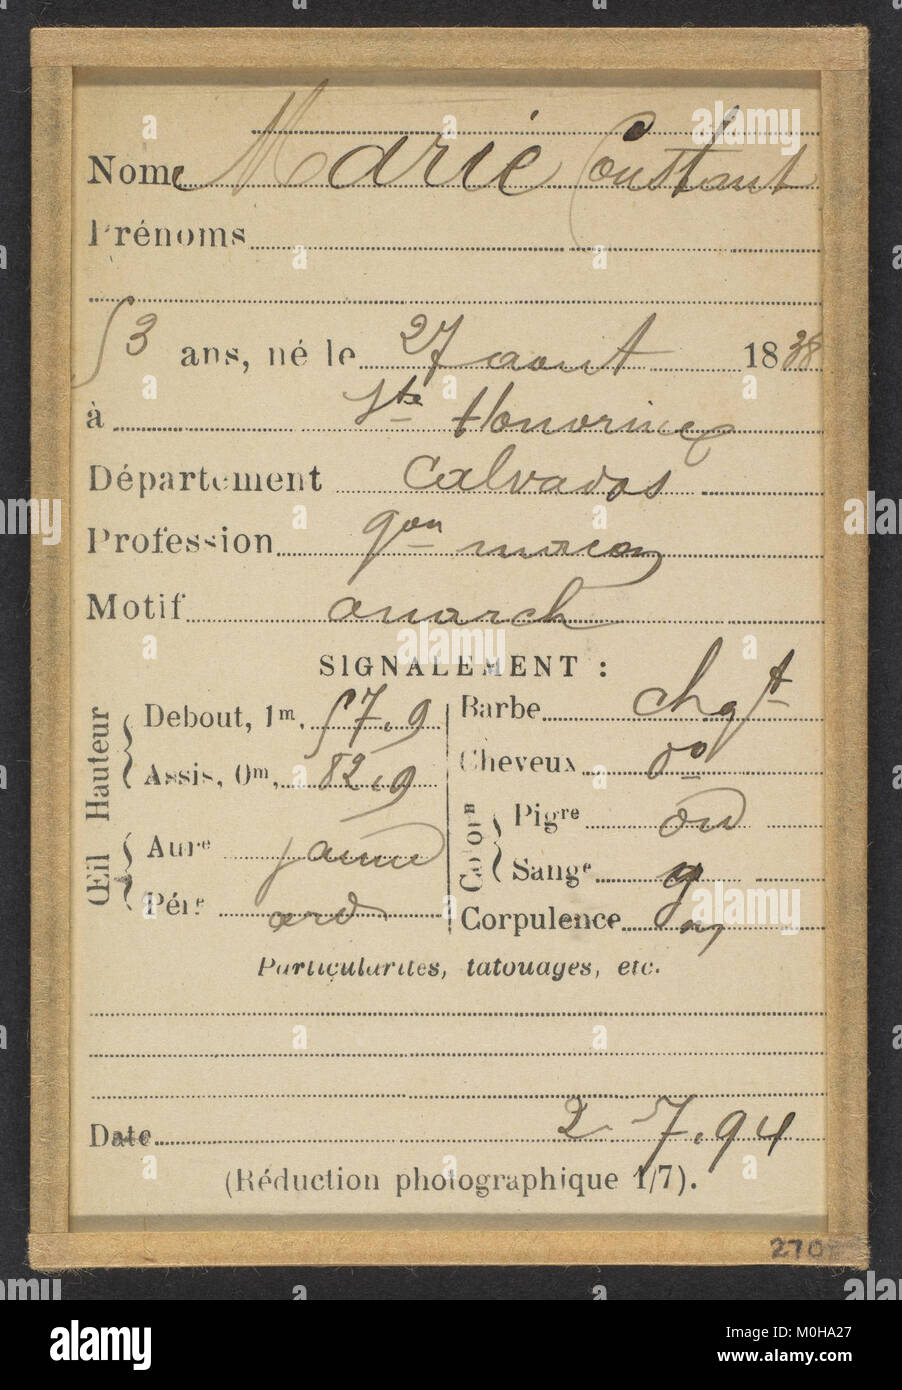 Nom Marie Constant
Prénoms
53 ans, né le 27 aout 1838
à Ste Honorine
Département Calvados
Profession gon macon
Motif anarch
SIGNALEMENT :
Hauteur
Debout, 1m, 57.9
Assis, 0m, 82.9
Œil
Aure
Pére
Barbe chgt
Cheveux do
Colorn
Pigre
Sange g
Corpulence
Particularités, tatouages, etc.
Date 2.7.94
(Réduction photographique 1/7).
270
alamy
www.alamy.com
M0HA27